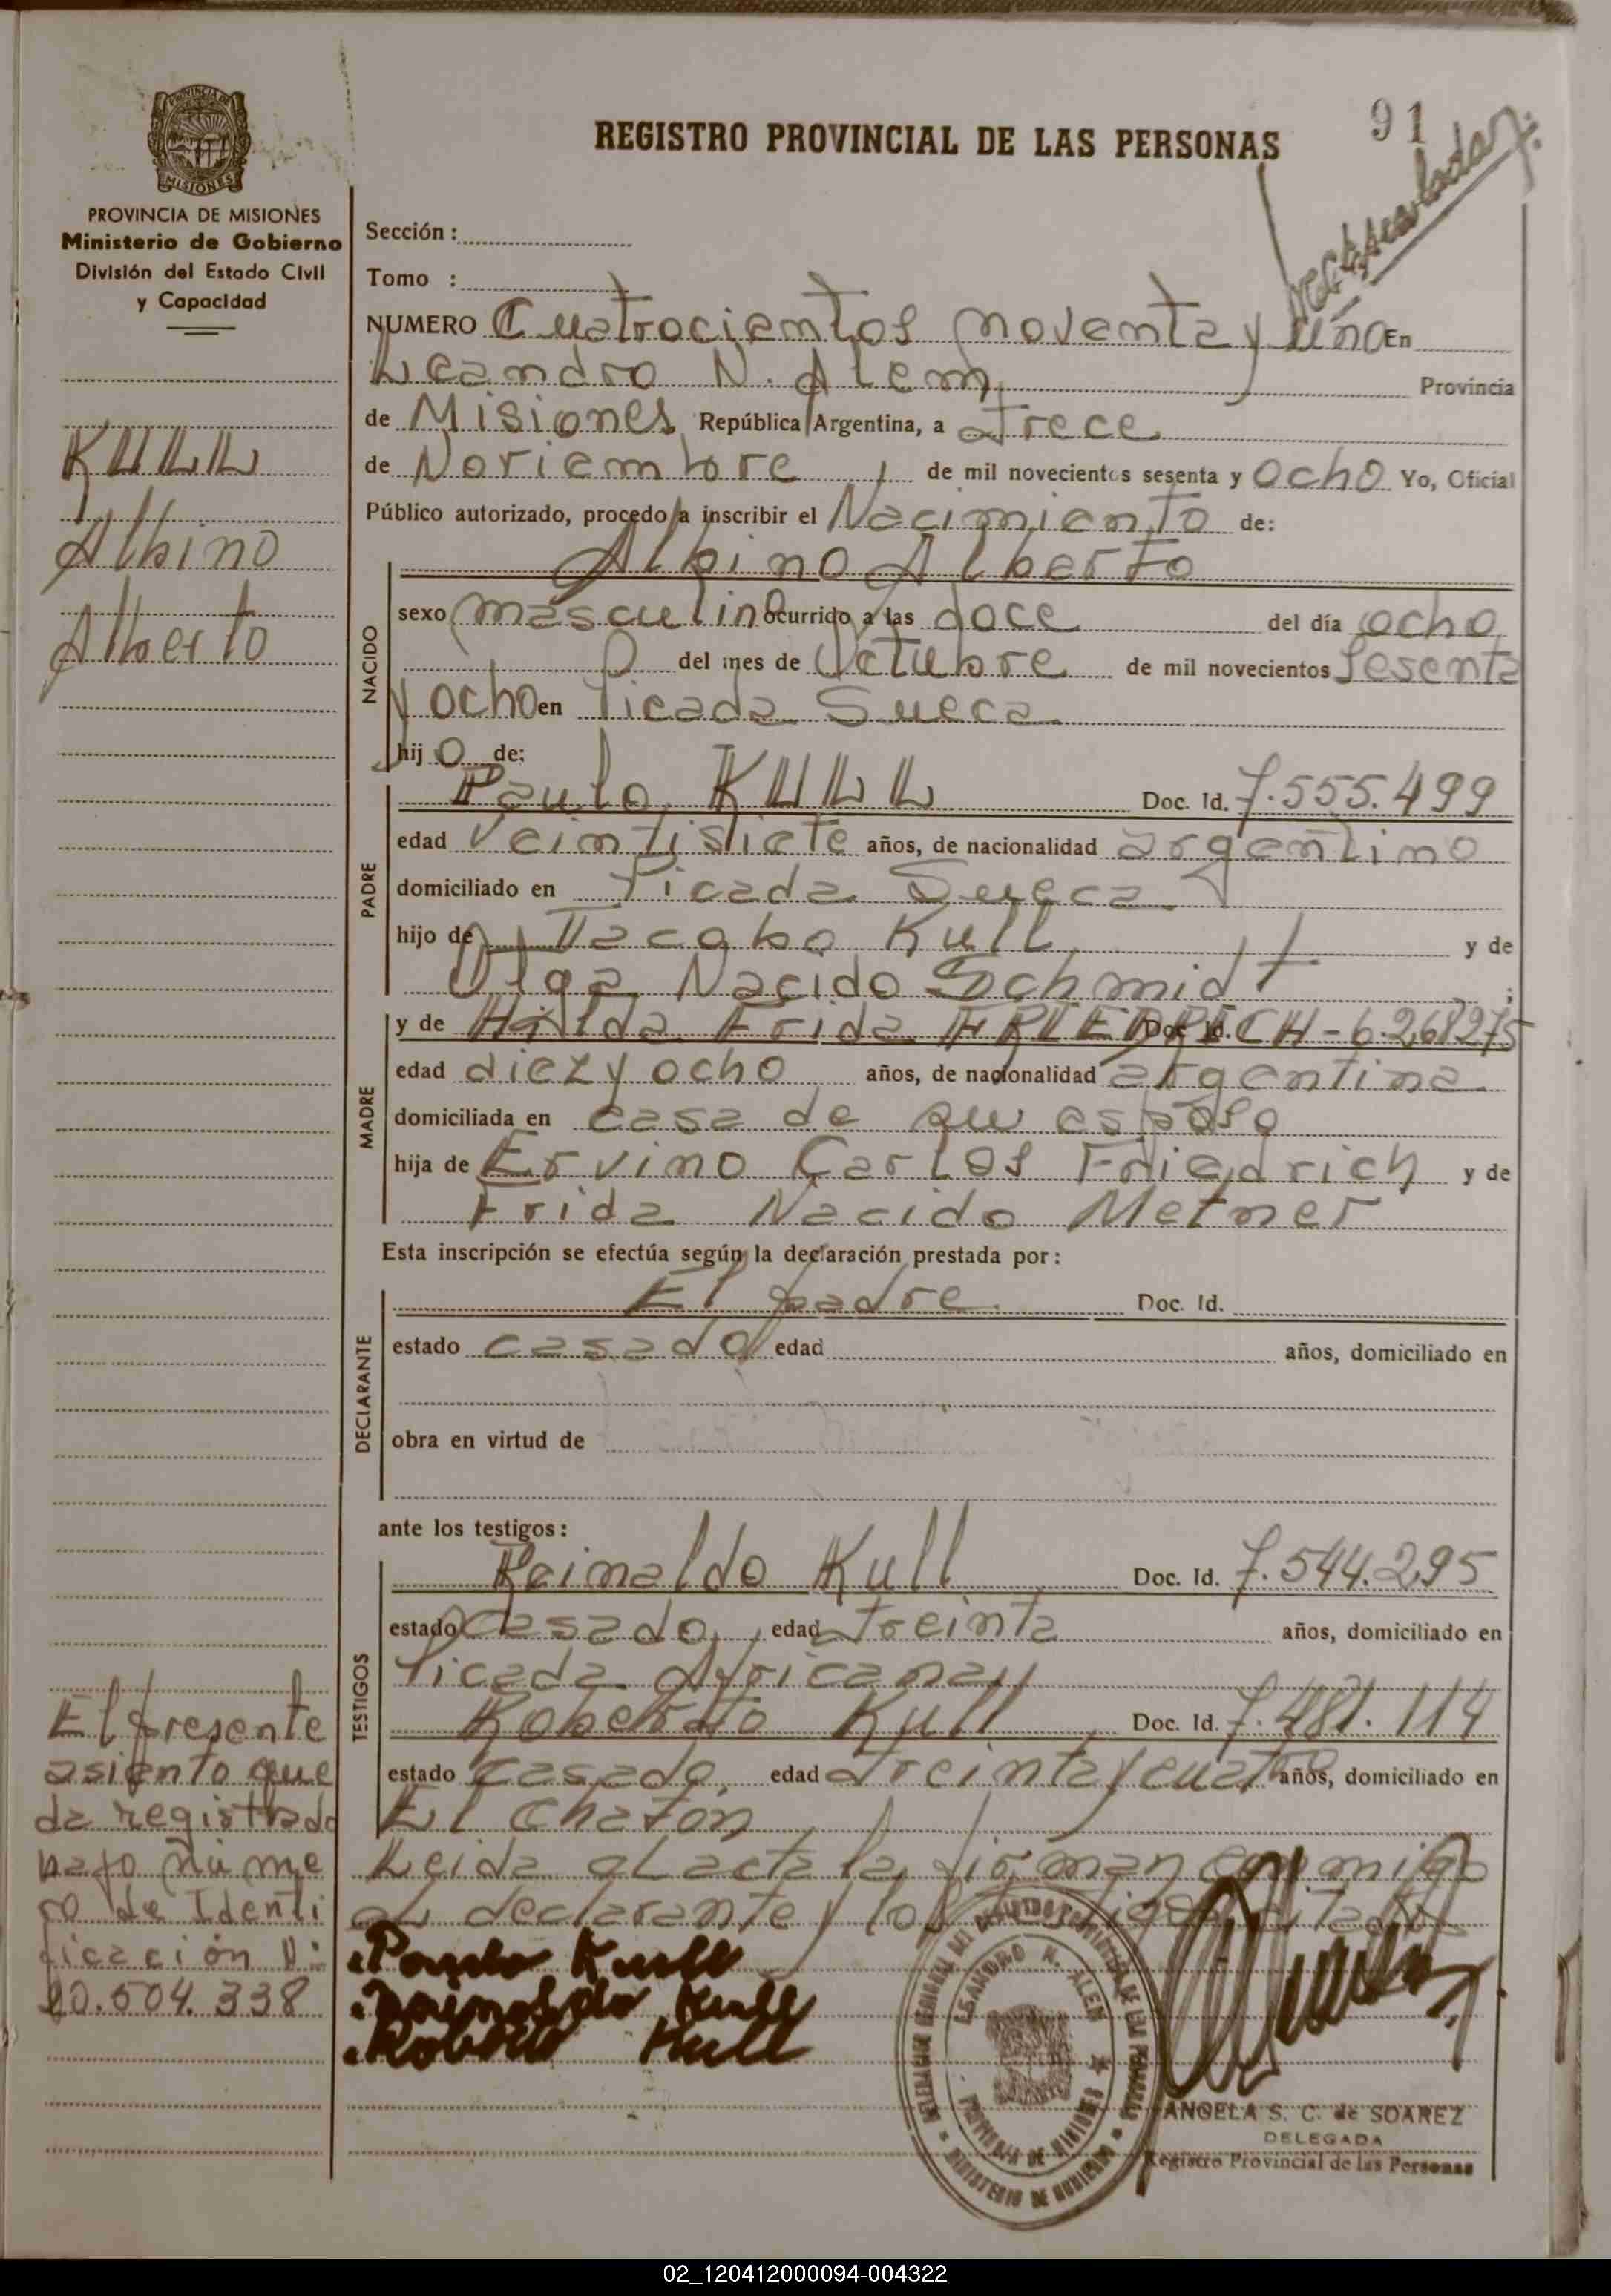 91
REGISTRO PROVINCIAL DE LAS PERSONAS
PROVINCIA DE
MISIONES
PROVINCIA DE MISIONES
Ministerio de Gobierno
División del Estado Civil
y Capacidad
KULL
Albino
Alberto
El presente
asiento que
da registrado
bajo núme
ro de Identi
ficación N:
20.504.338
Sección :
Tomo :
NUMERO Cuatrocientos noventa y uno En
Leandro N. Alem Provincia
de Misiones República Argentina, a trece
de Noviembre de mil novecientos sesenta y ocho Yo, Oficial
Público autorizado, procedo a inscribir el Nacimiento de:
Albino Alberto
NACIDO
sexo masculino ocurrido a las doce del día ocho
del mes de Octubre de mil novecientos sesenta
y ocho en Picada Sueca
hijo de:
PADRE
Paulo KULL Doc. Id. 7.555.499
edad veintisiete años, de nacionalidad argentino
domiciliado en Picada Sueca
hijo de Jacobo Kull y de
Olga Nacido Schmidt ;
MADRE
y de Hilda Frida FRIEDRICH - Doc. Id. 6.268275
edad diez y ocho años, de nacionalidad argentina
domiciliada en casa de su esposo
hija de Ervino Carlos Friedrich y de
Frida Nacido Metner
Esta inscripción se efectúa según la declaración prestada por :
DECLARANTE
El padre Doc. Id.
estado casado edad años, domiciliado en
obra en virtud de
ante los testigos :
TESTIGOS
Reinaldo Kull Doc. Id. 7.544.295
estado casado, edad treinta años, domiciliado en
Picada Africana y
Roberto Kull Doc. Id. 7.481.114
estado casado, edad treinta y cuatro años, domiciliado en
El Chatón
Leida el acta la firman conmigo
el declarante y los testigos citados
Paulo Kull
Reinaldo Kull
Roberto Kull
LEANDRO N. ALEM
PROVINCIA DE MISIONES
MINISTERIO DE GOBIERNO
ANGELA S. C. de SOAREZ
DELEGADA
Registro Provincial de las Personas
02_120412000094-004322